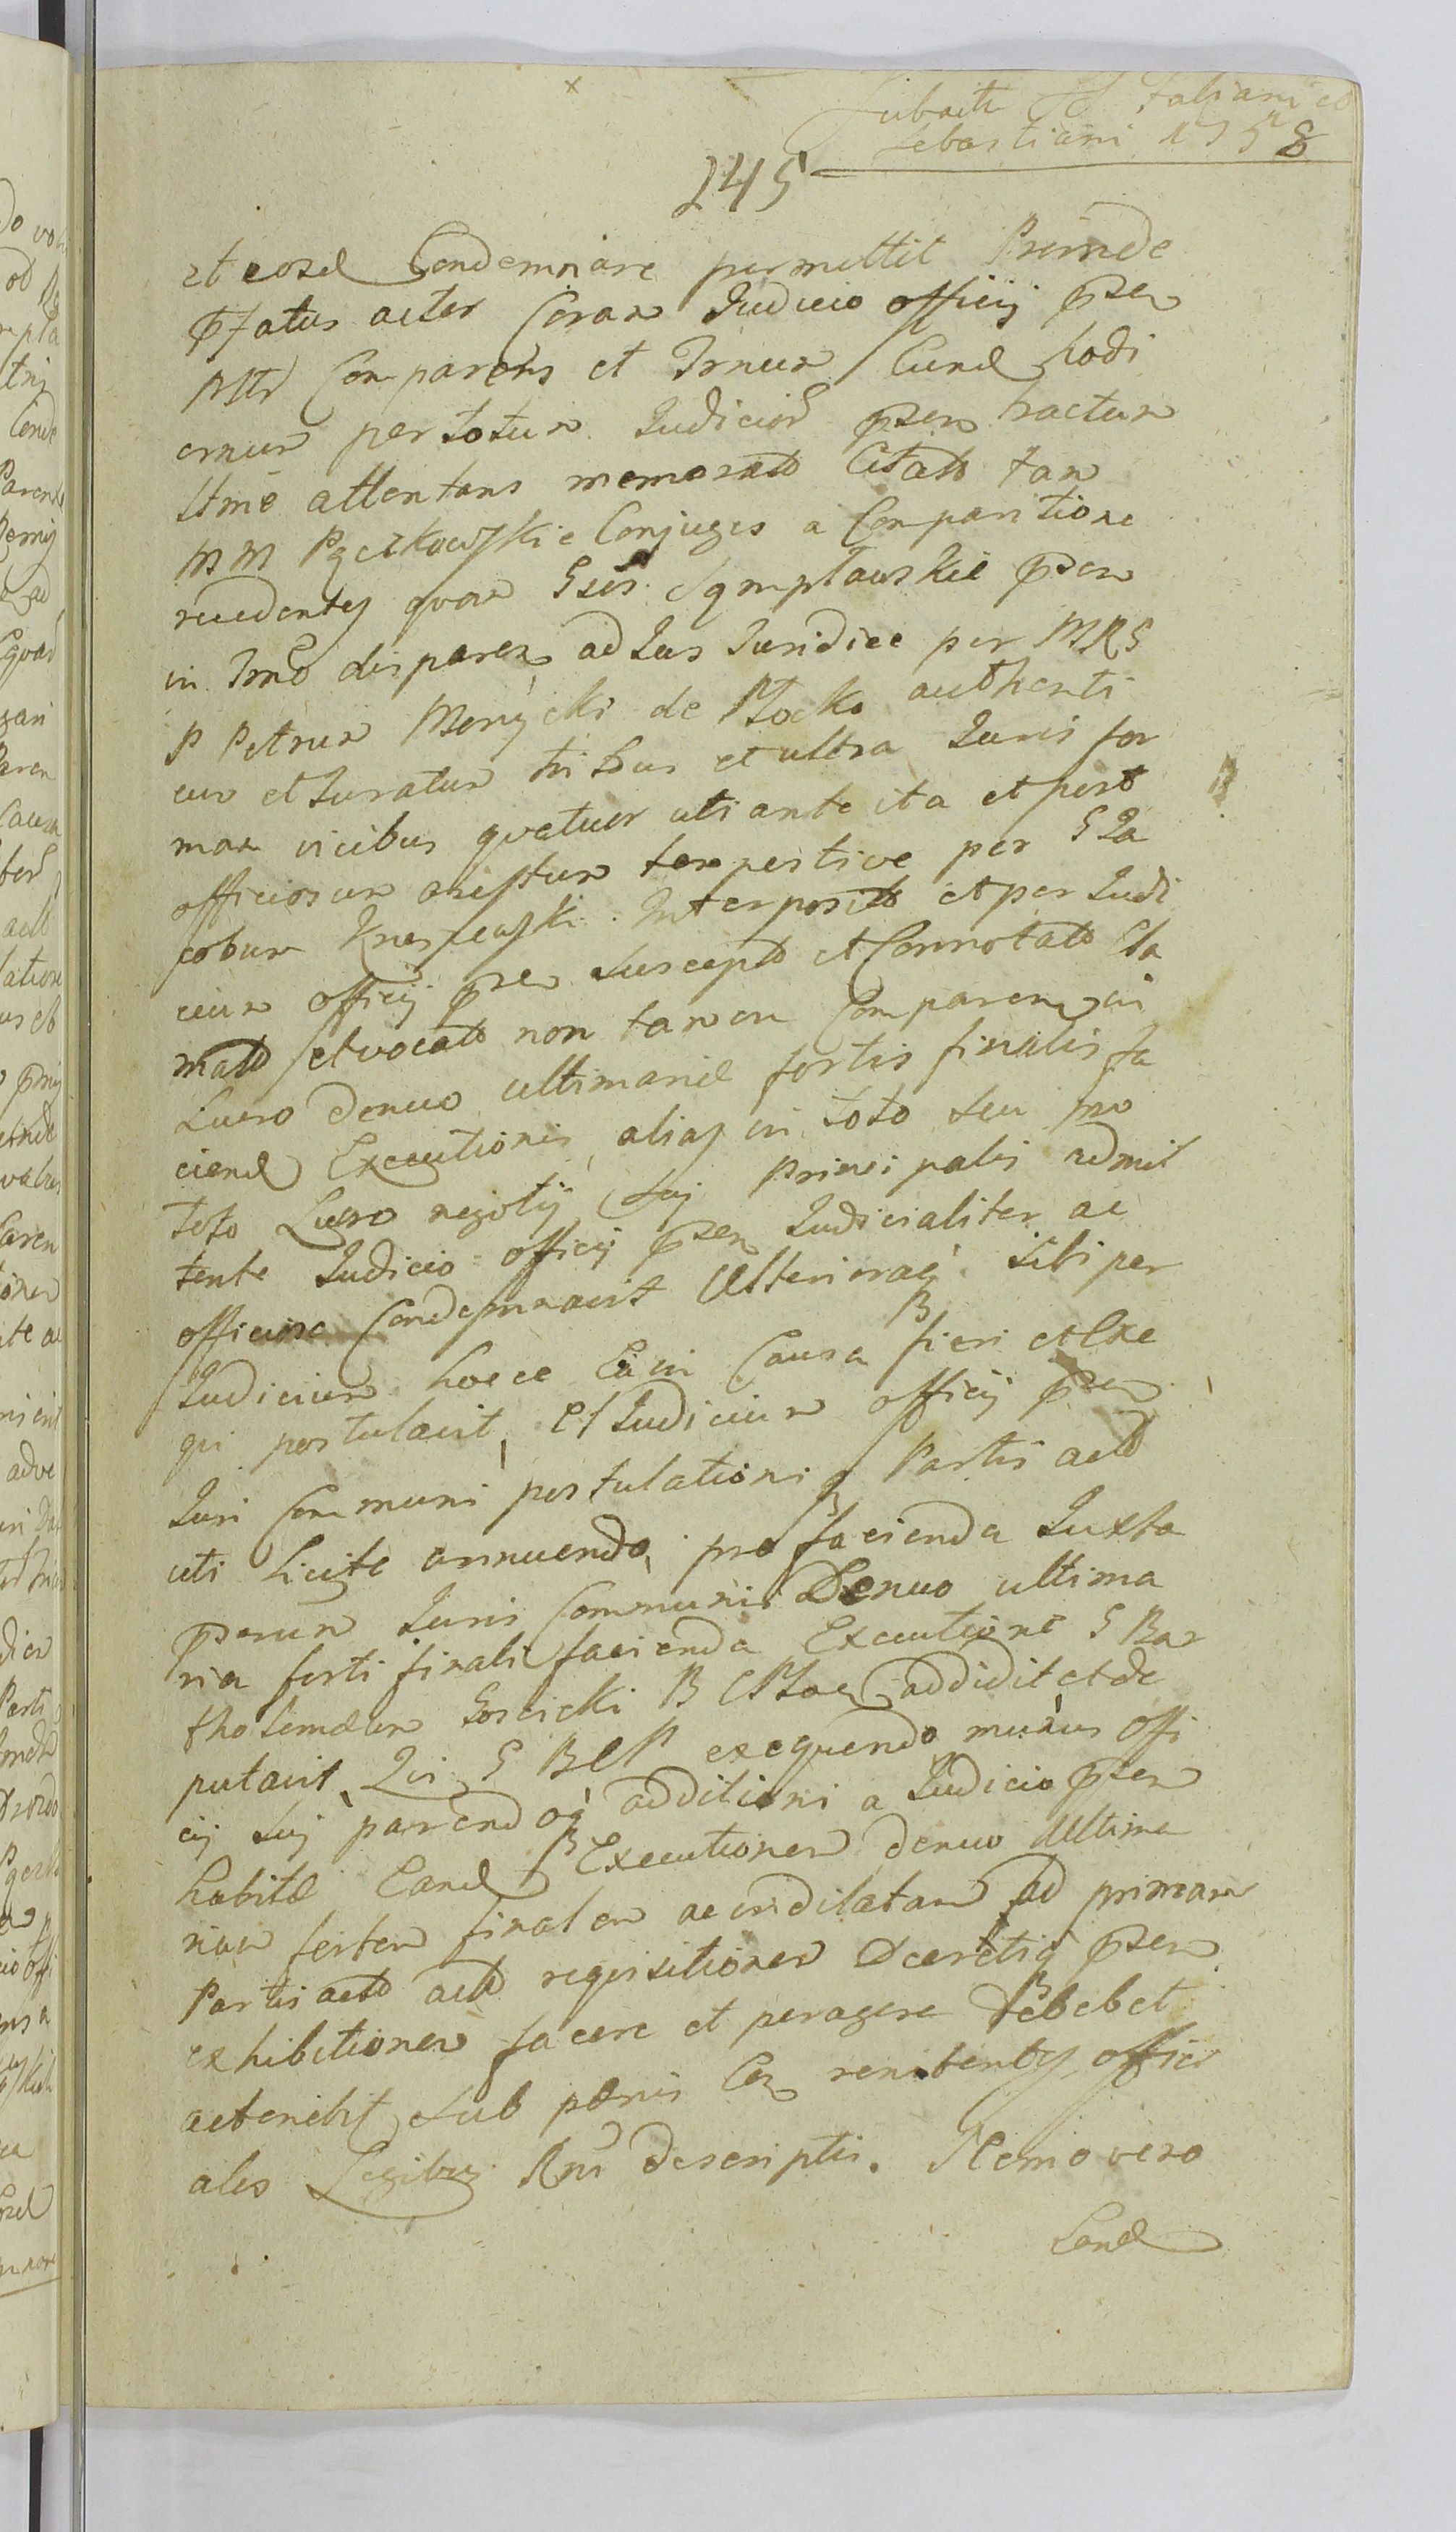 Sabatho SS Fabiani et
Sebastiani 1758
245
et eosd Condemnare permittit Proinde
Pfatus actor Coram Judicio officij psen
Mtr Comparens et Trnum Eund hodi
ernum per totum Judicior psen tractum
ltme attentans memorato Citato tam
MM Pączkowskie Conjuges a Comparitione
recedentes quam Gsos psen
in Trno disparen ad Jus Juridice per MRG
P Petrum de Płocko authenti
cum et Juratum tribus et ultra Juris for
mam vicibus quatuor uti ante ita et post
officiosum arestum tempestive per G Ja
cobum Interposito et per Judi
cium officij psen suscepto et Connotato Cla
mato et vocato non tamen Comparen in
Lucro denuo ultimarie fortis finalis fa
ciend Executionis, alias in toto seu pro
toto Lucro negotij sui Principalis admit
tente Judicio officij psen Judicialiter ac
officiose Condemnavit Ulterioraq sibi per
Judicium hocce Ea in Causa fieri et Exe
qui postulavit, Et Judicium officij psen
Juri Communi postulationiq Partis acto
uti licite annuendo, pro facienda Juxta
pserum Juris Communis Denuo ultima
ria forti finali facienda Executione G Bar
tholomæum Goscicki B C Ploc addidit et de
putavit, Qui G B C P exequendo munus offi
cij sui parendoq additioni a Judicio psen
habitæ Eand Executionem denuo Ultima
riam fortem finalem ac indilatam ad primam
Partis acto acto requisitionem Decretiq psen
exhibitionem facere et peragere debebit
ac tenebit sub pænis Con renitentes offici
ales Legibus Rni descriptis. Nemo vero
Eand